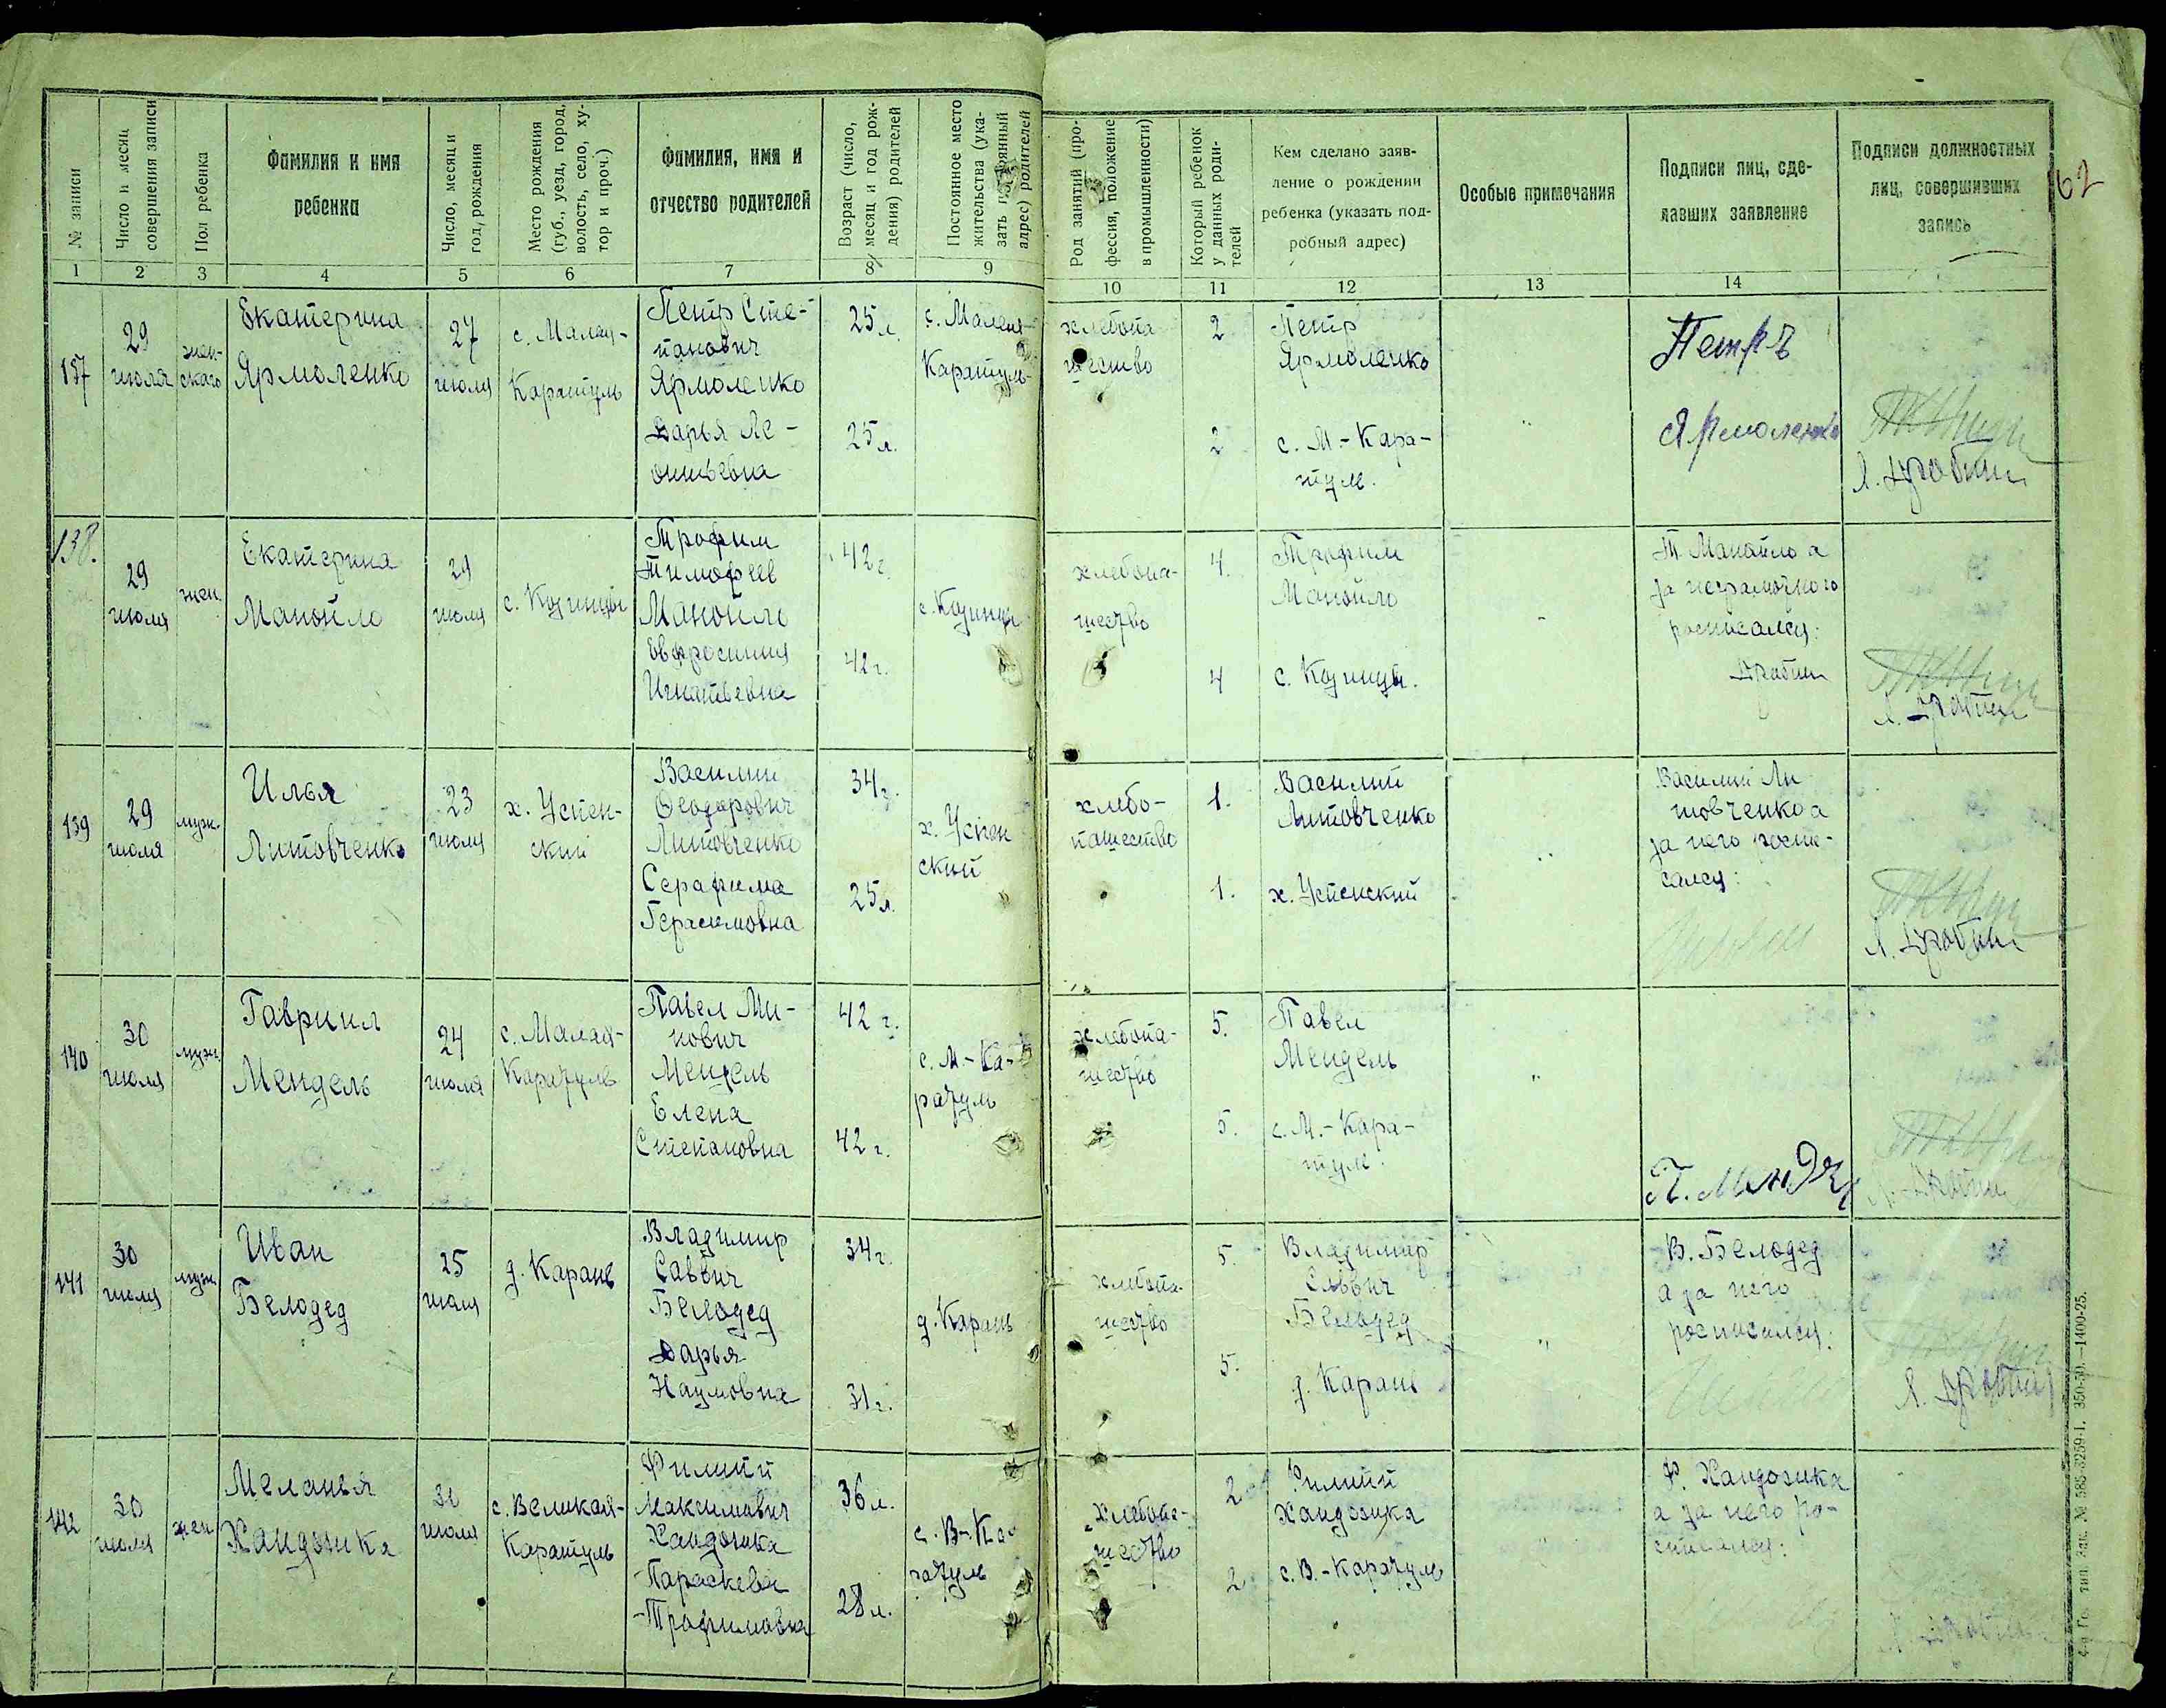 № записи
Число и месяц
совершения записи
Пол ребенка
Фамилия и имя
ребенка
Число, месяц и
год, рождения
Место рождения
(губ., уезд, город,
волость, село, ху-
тор и проч.)
Фамилия, имя и
отчество родителей
Возраст (число,
месяц и год рож-
дения) родителей
Постоянное место
жительства (ука-
зать
адрес) родителей
Род занятий (про-
фессия, положение
в промышленности)
Который ребенок
у данных роди-
телей
Кем сделано заяв-
ление о рождении
ребенка (указать под-
робный адрес)
Особые примечания
Подписи лиц, сде-
лавших заявление
Подписи должностных
лиц, совершивших
запись
62
1 2 3 4 5 6 7 8 9 10 11 12 13 14
137
29
июля
жен-
ского
Екатерина
Ярмоленко
27
июля
с. Малая-
Каратуль
Петр Сте-
панович
Ярмоленко
Дарья Ле-
онтьевна
25 л.
25 л.
с. Малая-
Каратуль
хлебопа
шество
2
2
Петр
Ярмоленко
с. М.-Кара-
туль.
Петръ
Ярмоленко
Л. Дробин
138.
29
июля
жен.
Екатерина
Манойло
29
июля
с. Козинцы
Трофим
Тимофеев
Манойло
Евфросиния
Игнатьевна
42 г.
42 г.
с. Козинцы
хлебопа-
шество
4.
4
Трофим
Манойло
с. Козинцы.
Т. Манойло а
за неграмотного
росписался:
Дробин
Л. Дробин
139
29
июля
муж.
Илья
Литовченко
23
июля
х. Успен-
ский
Василий
Феодорович
Литовченко
Серафима
Герасимовна
34 г.
25 л.
х. Успен
ский
хлебо-
пашество
1.
1.
Василий
Литовченко
х. Успенский
Василий Ли
товченко а
за него роспи-
сался:
Л. Дробин
140
30
июля
муж.
Гавриил
Мендель
24
июля
с. Малая-
Каратуль
Павел Ми-
нович
Мендель
Елена
Степановна
42 г.
42 г.
с. М.-Ка-
ратуль
хлебопа-
шество
5.
5.
Павел
Мендель
с. М.-Кара-
туль.
П. Мендель
Л. Дробин
141
30
июля
муж
Иван
Белодед
25
июля
д. Карань
Владимир
Саввич
Белодед
Дарья
Наумовна
34 г.
31 г.
д. Карань
хлебопа-
шество
5.
5.
Владимир
Саввич
Белодед
д. Карань
В. Белодед
а за него
росписался:
Л. Дробин
142
30
июля
жен
Меланья
Хандожка
30
июля
с. Великая-
Каратуль
Филипп
Максимович
Хандожка
Параскева
Трофимовна
36 л.
28 л.
с. В-Ка-
ратуль
Хлебопа-
шество
2
2
Филипп
Хандожка
с. В.-Каратуль
Ф. Хандожка
а за него ро-
списался:
Л. Дробин